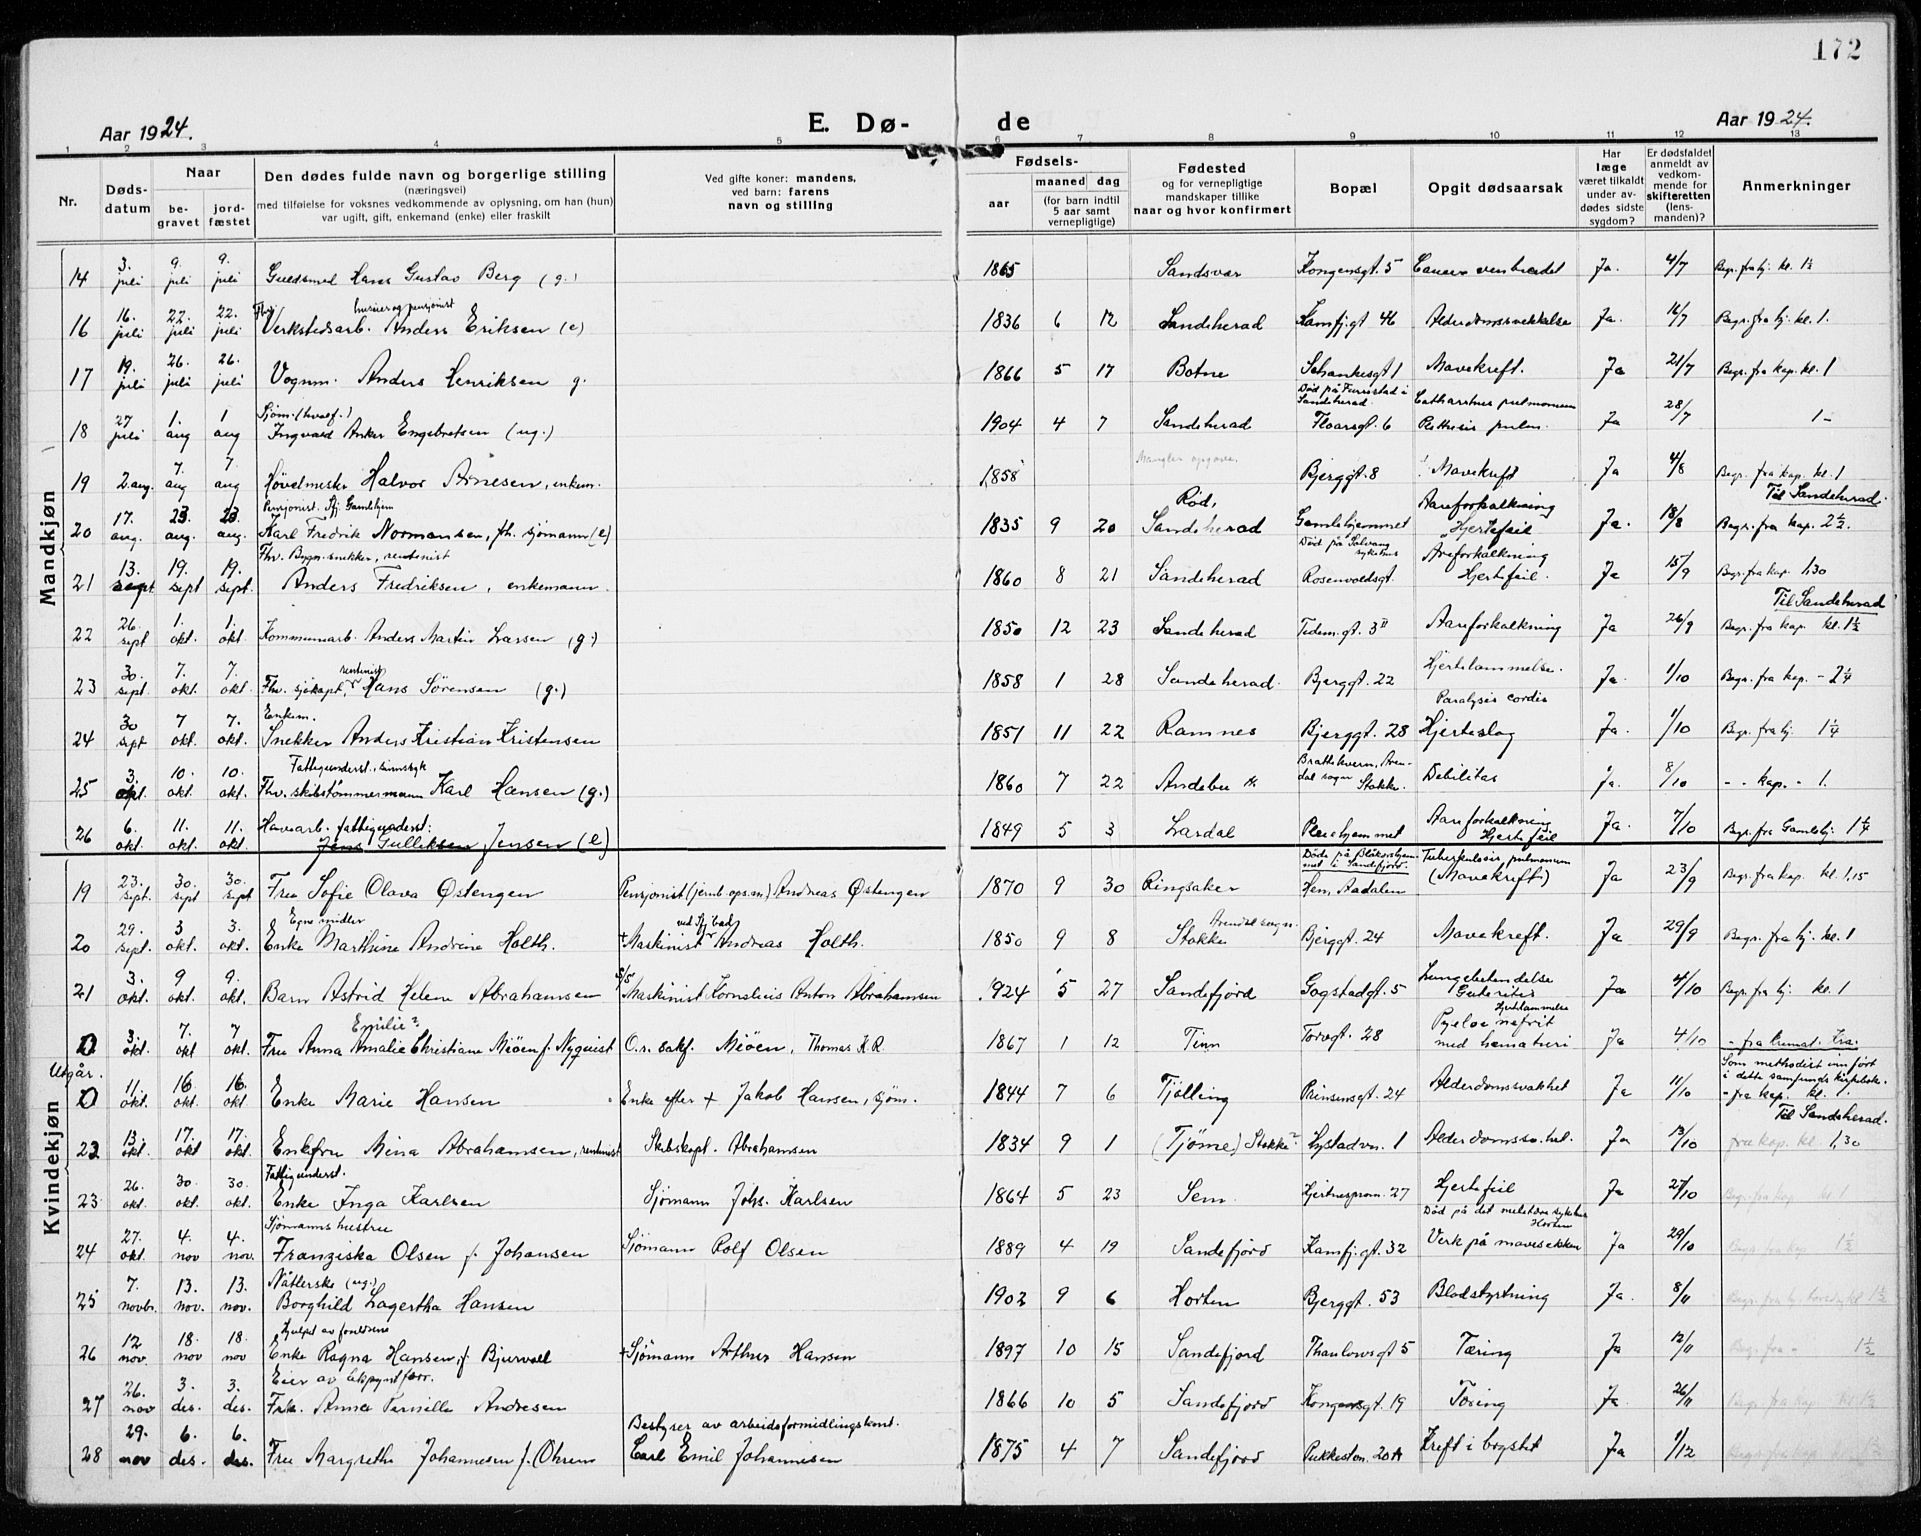 172
Aar 1924.
E. Dø-
de
Aar 1924.
1 2 3 4 5 6 7 8 9 10 11 12 13
Nr.
Døds-
datum
Naar
be-
gravet
jord-
fæstet
Den dødes fulde navn og borgerlige stilling
(næringsvei)
med tilføielse for voksnes vedkommende av oplysning, om han (hun)
var ugift, gift, enkemand (enke) eller fraskilt
Ved gifte koner: mandens,
ved barn: farens
navn og stilling
Fødsels-
aar
maaned
dag
(for barn indtil
5 aar samt
vernepligtige)
Fødested
og for vernepligtige
mandskaper tillike
naar og hvor konfirmert
Bopæl
Opgit dødsaarsak
Har
læge
været tilkaldt
under av-
dødes sidste
sygdom?
Er dødsfaldet
anmeldt av
vedkom-
mende for
skifteretten
(lens-
manden)?
Anmerkninger
Mandkjøn
14 3. juli 9. juli 9. juli Guldsmed Hans Gustav Berg (g.) 1865 Sandsvær Kongensgt. 5 Cancer Ja. 4/7 Begr. fra hj. kl. 1½
16 16. juli 22. juli 22. juli Fhv. Verkstedsarb. huseier og pensjonist Anders Eriksen (e) 1836 6 12 Sandeherad Kamfj.gt 46 Alderdomssvekkelse Ja. 16/7 Begr. fra hj. kl. 1.
17 19. juli 26. juli 26. juli Vognm. Anders Henriksen g. 1866 5 17 Botne Schankesgt 1 Mavekreft. Ja 21/7 Begr. fra kap. kl. 1
18 27 juli 1. aug 1 aug Sjøm. (hvalf.) Ingvald Anker Engebretsen (ug.) 1904 4 7 Sandeherad Død på Furustad i Sandeherad. Floorsgt. 6 Catharrhus pulmonum Phthisis pulm. Ja 28/7 1-
19 2. aug. 7. aug 7. aug Høvelmester Halvor Arnesen, enkem. 1858 Mangler opgave. Bjerggt. 8 Mavekreft Ja 4/8 Begr. fra kap. kl. 1
20 17. aug. 23. aug. 23. aug. Pensjonist. Sfj. Gamlehjem Karl Fredrik Normansen, fh. sjømann (e) 1835 9 20 Rød, Sandeherad Gamlehjemmet Aareforkalkning Hjertefeil Ja. 18/8 Til Sandeherad. Begr. fra kap. 2½.
21 13. sept. 19. sept 19. sept. Fhv. Bygn. snekker, rentenist Anders Fredriksen, enkemann. 1860 8 21 Sandeherad Død på Solvang sykehus Rosenvoldsgt. Areforkalkning Hjertefeil. Ja 15/9 Begr. fra kap. 1,30
22 26. sept 1. okt. 1. okt. Kommunearb. Anders Martin Larsen (g.) 1850 12 23 Sandeherad Tidem.gt. 3 II Aareforkalkning Ja 26/9 Til Sandeherad Begr. fra kap. kl. 1½
23 30. sept. 7. okt. 7. okt. Fhv. sjökapt., rentenist Hans Sørensen (g.) 1858 1 28 Sandeherad. Bjerggt. 22 Hjertelammelse. Ja. 1/10 Begr. fra kap. - 2¼
24 30 sept 7 okt. 7. okt. Enkem. Snekker Anders Kristian Kristensen 1851 11 22 Ramnes Bjerggt. 28 Paralysis cordis Hjerteslag Ja. 1/10 Begr. fra hj. 1¼
25 3. okt. 10. okt. 10. okt. Fattigunderst., sinnssyk Fhv. skibstømmermann Karl Hansen (g.) 1860 7 22 Andebu Brattekvern, Arendal sogn Stokke. Debilitas Ja. 8/10 - - kap. - 1.
26 6. okt. 11. okt. 11. okt. Havearb. fattigunderst: Jens Gulliksen Jensen (e) 1849 5 3 Lardal Pleiehjemmet Aareforkalkning Hjertefeil Ja. 7/10 Begr. fra Gamlehj. 1¼
Kvindekjøn
19 23. sept. 30. sept 30. sept Fru Sofie Olava Østengen Pensjonist (jernb.ops.m) Andreas Østengen 1870 9 30 Ringsaker Døde på Blåkorshjemmet i Sandefjord. Hem, Aadalen Tuberkulosis pulmonum (Mavekreft) Ja 23/9 Begr. fra kap. kl. 1,15
20 29. sept. 3 okt. 3. okt. Egne midler Enke Marthine Andrine Holth. + Maskinist ved Sfj. bad Andreas Holth. 1850 9 8 Arendal sogn. Stokke Bjerggt. 24 Mavekreft. Ja 29/9 Begr. fra hj. kl. 1
21 3. okt. 9 okt. 9. okt. Barn Astrid Helene Abrahamsen Maskinist Kornelius Anton Abrahamsen 1924 5 27 Sandefjord Gogstadgt. 5 Lungebetendelse Enterites Hjertelammelse Ja 4/10 Begr. fra hj. kl. 1
Utgår. 0 3. okt. 7. okt 7 okt. Emilie? Fru Anna Amalie Christiane Möen f. Nyquist O.r. sakf. Möen, Thomas K.R. 1867 1 12 Tinn Torvgt. 28 Pyeloe nefrit med hæmaturi Ja 4/10 - fra kremat. Kra.
0 11. okt. 16 okt. 16. okt Enke Marie Hansen Enke efter + Jakob Hansen, sjöm. 1844 7 6 Tjølling Prinsensgt. 24 Alderdomssvakhet Ja 11/10 Som methodist innført i dette samfunds kirkebok. - fra kap. kl. 1.
22 13. okt. 17. okt. 17. okt. Enkefru Mina Abrahamsen, rentenist Skibskapt. Abrahamsen 1834 9 1 (Tjöme) Stokke? Hystadvn. 1 Alderdomssvakh. Ja 13/10 Til Sandeherad. fra kap. kl. 1,30
23 26. okt. 30. okt. 30. okt. Fattigunderst. Enke Inga Karlsen Sjömann Johs. Karlsen 1864 5 23 Sem. Hjertnesprom. 27 Hjertefeil Ja 27/10 Begr. fra kap. kl 1
24 27. okt. 4. nov 4. nov. Sjömanns hustru Franziska Olsen f. Johansen Sjömann Rolf Olsen 1889 4 19 Sandefjord Kamfj.gt. 32 Død på det militære sykehus Horten Verk på mavesekken Ja 29/10 Begr. kap. 1½
25 7. novbr. 13. nov. 13. nov. Nåtlerske (ug.) Borghild Lagertha Hansen 1902 9 6 Horten Bjerggt. 53 Blodstyrtning Ja. 8/11 Begr. fra hj. kl 1½
26 12 nov. 18. nov 18. nov Hjulpet av foreldrene Enke Ragna Hansen, f. Bjurvall + Sjömann Arthur Hansen 1897 10 15 Sandefjord Thaulowsgt 5 Tæring Ja 12/11 Begr. fra - 1½
27 26. nov 3. des. 3. des. Eier av Frk. Anna Pernille Andresen 1866 10 5 Sandefjord Kongensgt. 19 Tæring Ja. 26/11 Begr. fra kap. kl 1½
28 29. nov 6. des. 6. des. Fru Margrethe Johannesen f. Ohren Bestyrer av arbeidsformidlingskont. Carl Emil Johannesen 1875 4 7 Sandefjord Pukkestan. 20A Kreft i brystet Ja 1/12 Begr. fra kap